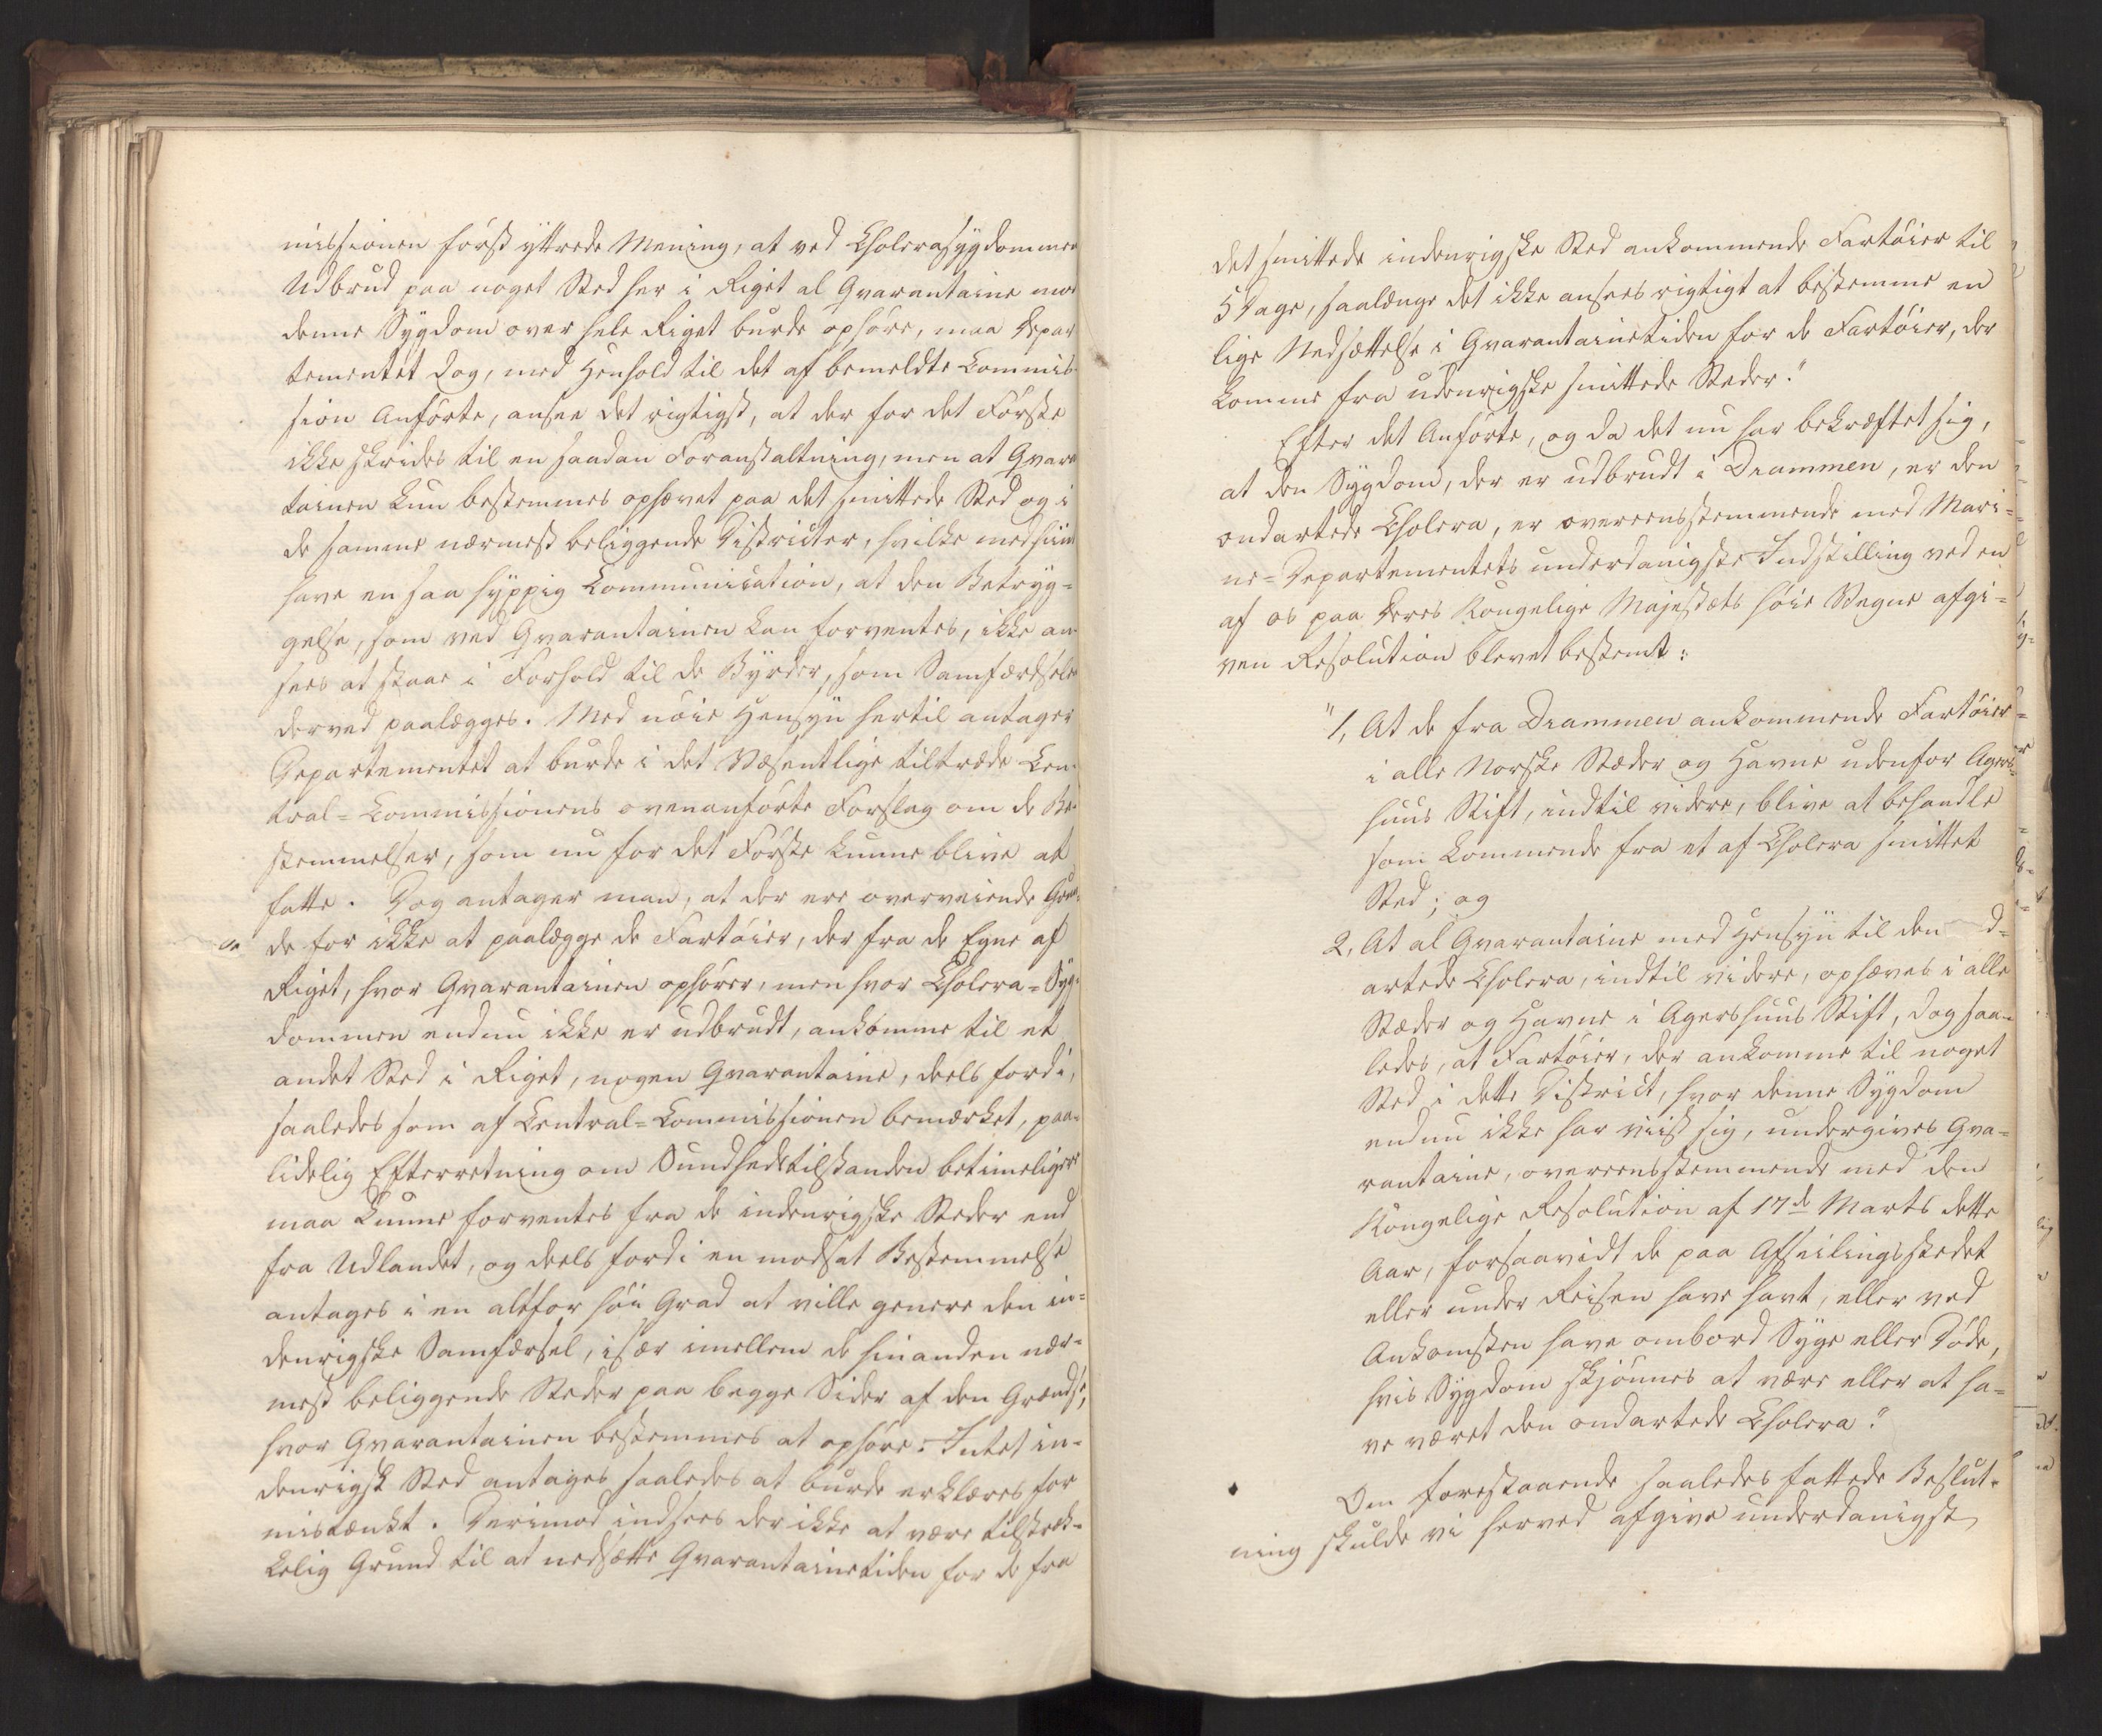 missionen först yttrede Mening, at ved Cholerasygdommen
Udbrud paa noget Sted her i Riget al Qvarantaine mod
denne Sygdom over hele Riget burde ophöre, maa Depar
tementet dog, med Henhold til det af bemeldte Commis-
sion Anförte, ansee det rigtigst, at der for det Förste
ikke skrides til en saadan Foranstaltning, men at Qvaran
tainen kun bestemmes ophævet paa det smittede Sted og i
de samme nærmest beliggende Districter, hvilke med hiint
have en saa hyppig Communication, at den Betryg-
gelse, som ved Qvarantainen kan forventes, ikke an-
sees at staae i Forhold til de Byrder, som Samfærdselen
derved paalægges. Med nöie Hensyn hertil antager
Departementet at burde i det Væsentlige tiltræde Cen-
tral-Commissionens ovenanförte Forslag om de Be-
stemmelser, som nu for det Förste kunne blive at
fatte. Dog antager man, at der ere overveiende Grun-
de for ikke at paalægge de Fartöier, der fra de Egne af
Riget, hvor Qvarantainen ophörer, men hvor Cholera-Syg-
dommen endnu ikke er udbrudt, ankomme til et
andet Sted i Riget, nogen Qvarantaine, deels fordi,
saaledes som af Central-Commissionen bemærket, paa-
lidelig Efterretning om Sundhedstilstanden betimeligere
maa kunne forventes fra de indenrigske Steder end
fra Udlandet, og deels fordi en modsat Bestemmelse
antages i en altfor höi Grad at ville genere den in-
denrigske Samfærsel, især imellem de hinanden nær-
mest beliggende Steder paa begge Sider af den Grændse,
hvor Qvarantainen bestemmes at ophöre. Intet in-
denrigsk Sted antages saaledes at burde erklæres for
mistænkt. Derimod indsees der ikke at være tilstræk-
kelig Grund til at nedsætte Qvarantainetiden for de fra
det smittede indenrigske Sted ankommende Fartöier til
5 Dage, saalænge det ikke ansees rigtigt at bestemme en
lige Nedsættelse i Qvarantainetiden for de Fartöier, der
komme fra udenrigske smittede Steder."
Efter det Anförte, og da det nu har bekræftet sig,
at den Sygdom, der er udbrudt i Drammen, er den
ondartede Cholera, er overeensstemmende med Mari-
ne-Departementets underdanigste Indstilling ved en
af os paa Deres Kongelige Majestæts höie Vegne afgi-
ven Resolution blevet bestemt:
"1, At de fra Drammen ankommende Fartöier
i alle Norske Stæder og Havne udenfor Agers-
huus Stift, indtil videre, blive at behandle
som kommende fra et af Cholera smittet
Sted; og
2, At al Qvarantaine med Hensyn til den d-
artede Cholera, indtil videre, ophæves i alle
Stæder og Havne i Agershuus Stift, dog saa-
ledes, at Fartöier, der ankomme til noget
Sted i dette District, hvor denne Sygdom
endnu ikke har viist sig, undergives Qva-
rantaine, overeensstemmende med den
Kongelige Resolution af 17de Marts dette
Aar, forsaavidt de paa Afseilingsstedet
eller under Reisen have havt, eller ved
Ankomsten have ombord Syge eller Döde,
hvis Sygdom skjönnes at være eller at ha-
ve været den ondartede Cholera."
Om forestaaende saaledes fattede Beslut-
ning skulde vi herved afgive underdanigst